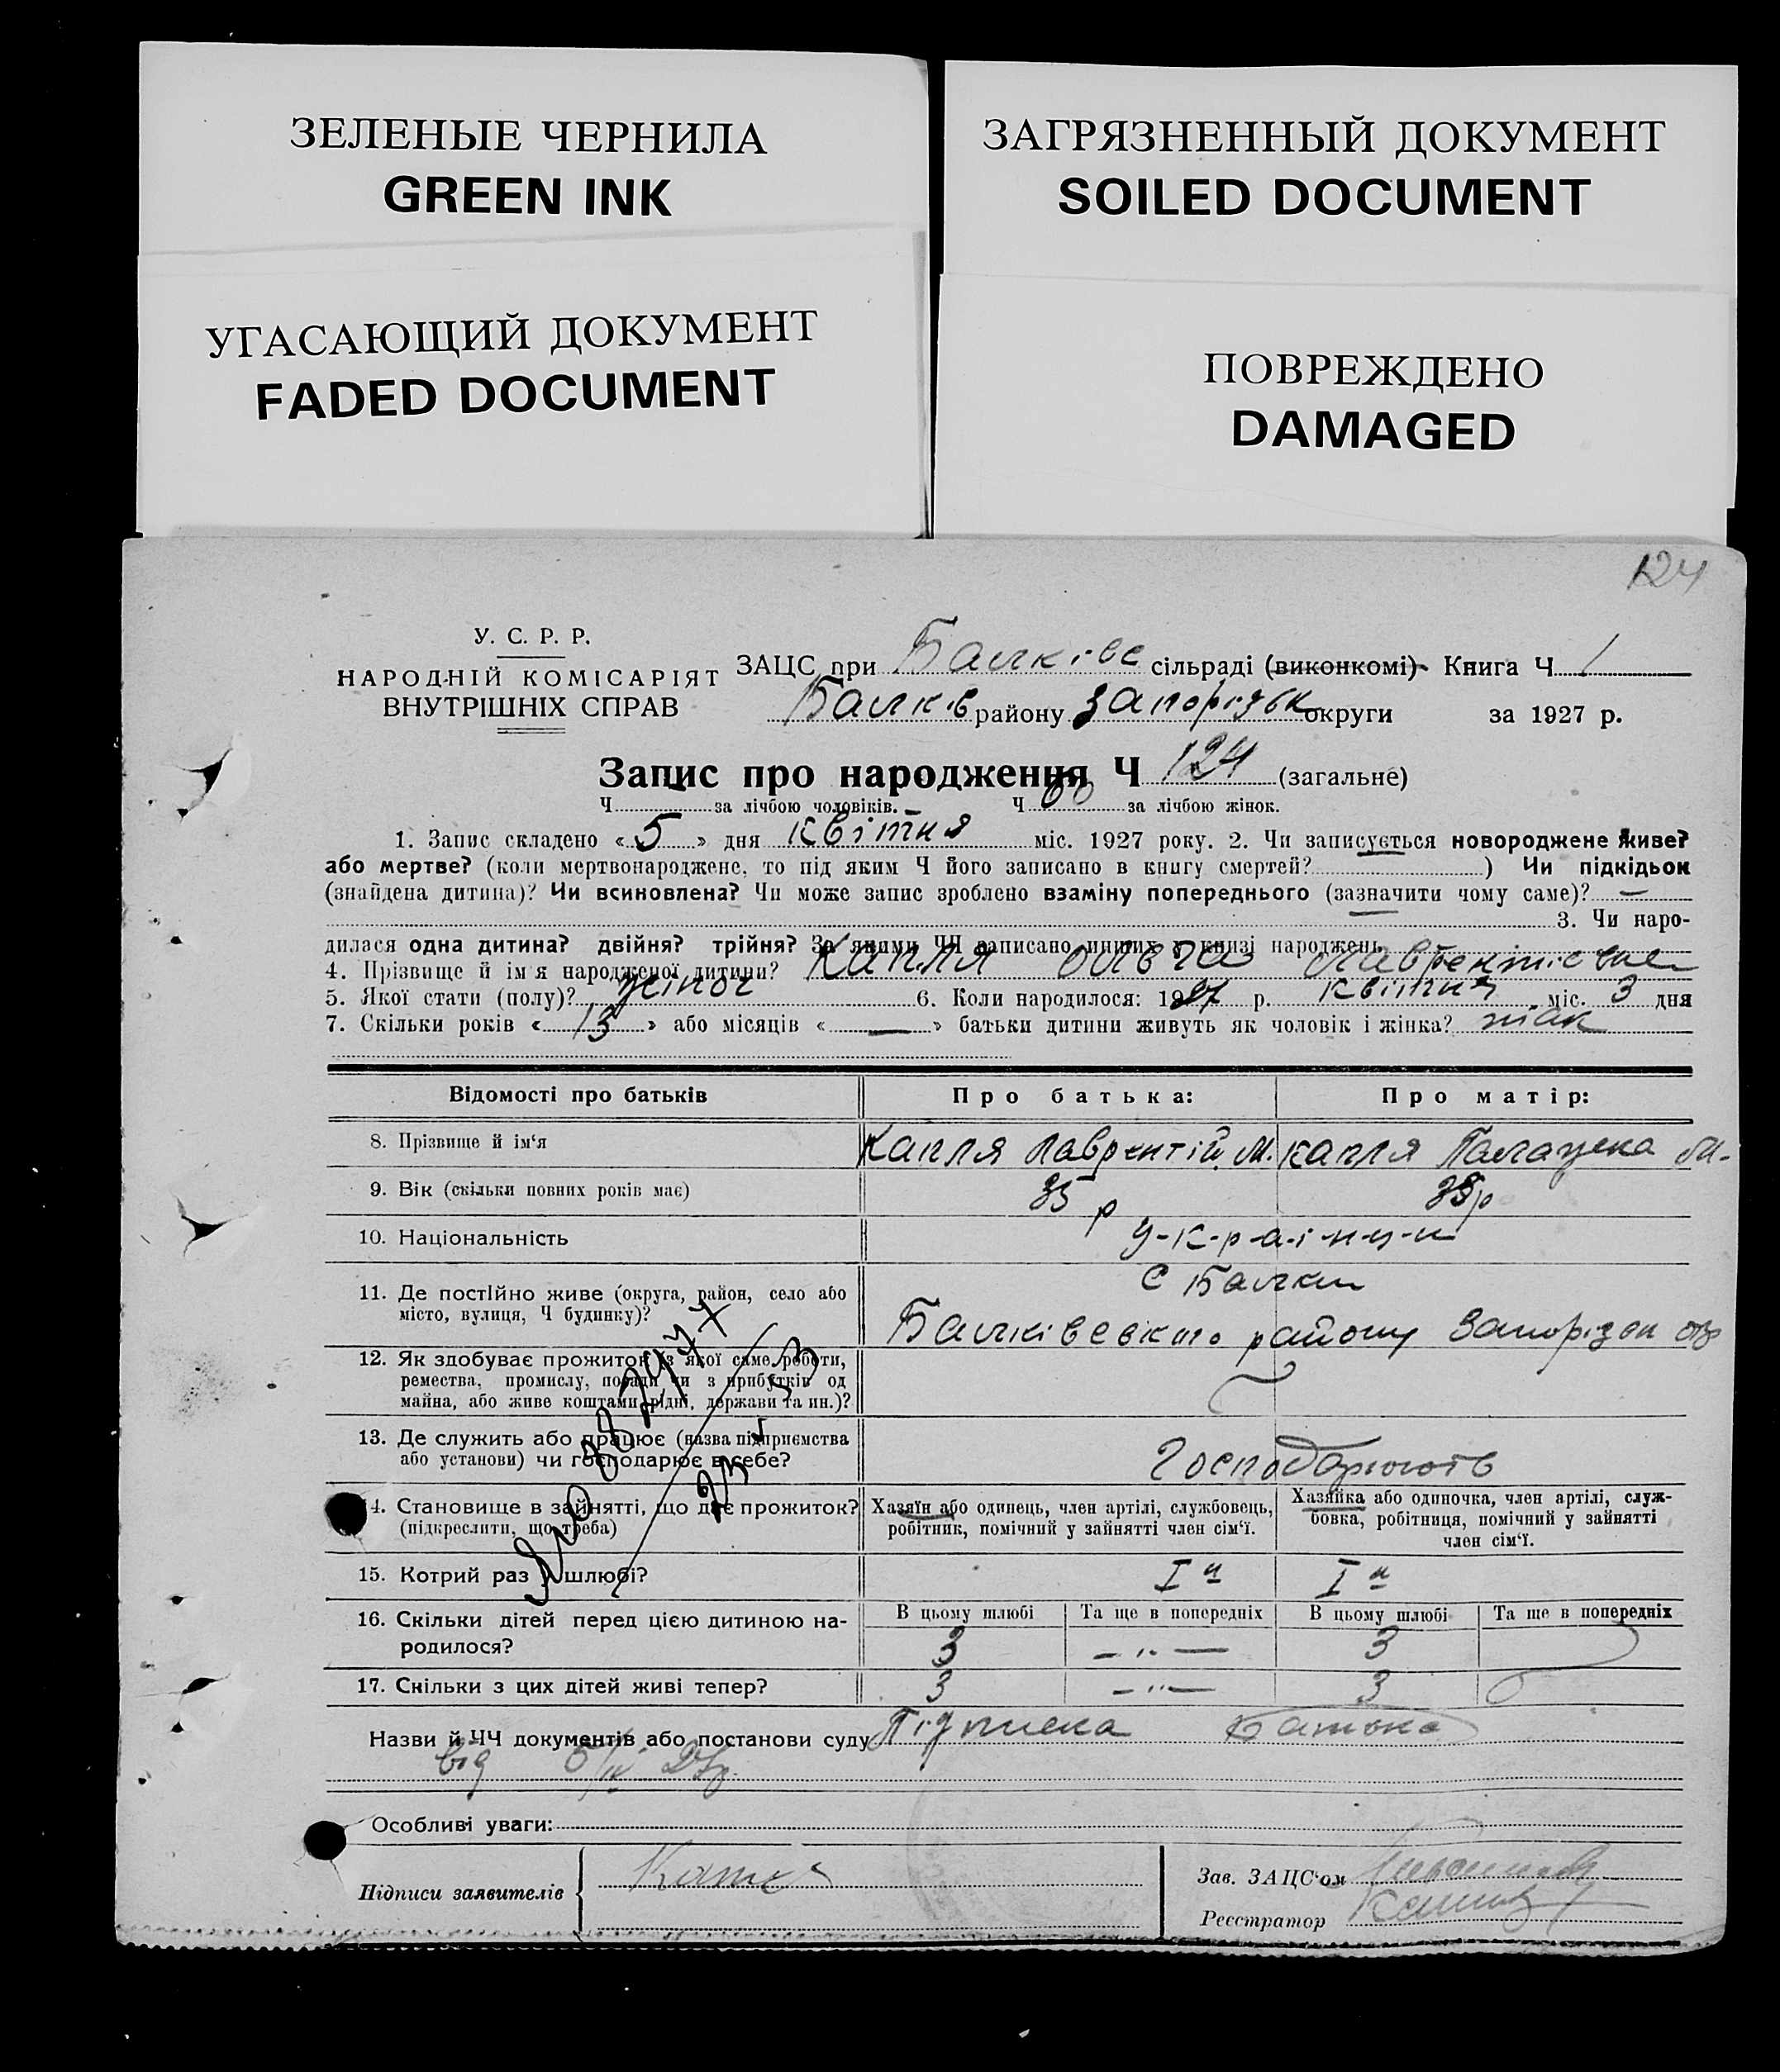 ЗЕЛЕНЫЕ ЧЕРНИЛА
GREEN INK
ЗАГРЯЗНЕННЫЙ ДОКУМЕНТ
SOILED DOCUMENT
УГАСАЮЩИЙ ДОКУМЕНТ
FADED DOCUMENT
ПОВРЕЖДЕНО
DAMAGED
124
У. С. Р. Р.
НАРОДНІЙ КОМІСАРІЯТ
ВНУТРІШНІХ СПРАВ
ЗАЦС при Балківс сільраді (виконкомі) Книга Ч 1
Балків району Запорізьк округи за 1927 р.
Запис про народження Ч 124 (загальне)
Ч - за лічбою чоловіків. Ч 60 за лічбою жінок.
1. Запис складено « 5 » дня квітня міс. 1927 року. 2. Чи записується новороджене живе?
або мертве? (коли мертвонароджене, то під яким Ч його записано в книгу смертей? ) Чи підкідьок
(знайдена дитина)? Чи всиновлена? Чи може запис зроблено взаміну попереднього (зазначити чому саме)? —
3. Чи наро-
дилася одна дитина? двійня? трійня? За якими ЧЧ записано инших у книзі народжень
4. Прізвище й ім'я народженої дитини? Капля Ольга Лаврентієвна
5. Якої стати (полу)? жіноч 6. Коли народилося: 1927 р. квітня міс. 3 дня
7. Скільки років « 13 » або місяців « — » батьки дитини живуть як чоловік і жінка? так
Відомості про батьків Про батька: Про матір:
8. Прізвище й ім'я Капля Лаврентій М. Капля Палажека М.
9. Вік (скільки повних років має) 35 р 35 р
10. Національність У-к-р-а-ї-н-ц-и
11. Де постійно живе (округа, район, село або
місто, вулиця, Ч будинку)?
С Балки
Балківсвікого району Запорізьк окр
12. Як здобуває прожиток (з якої саме роботи,
ремества, промислу, поради чи з прибутків од
майна, або живе коштами рідні, держави та ин.)?
13. Де служить або працює (назва підприємства
або установи) чи господарює в себе?
Господарюють
14. Становище в зайнятті, що дає прожиток?
(підкреслити, що треба)
Хазяїн або одинець, член артілі, службовець,
робітник, помічний у зайнятті член сім'ї.
Хазяйка або одиночка, член артілі, служ-
бовка, робітниця, помічний у зайнятті
член сім'ї.
15. Котрий раз у шлюбі? I й I й
16. Скільки дітей перед цією дитиною на-
родилося?
В цьому шлюбі Та ще в попередніх В цьому шлюбі Та ще в попередніх
3 — " — 3
17. Скільки з цих дітей живі тепер? 3 — " — 3
Назви й ЧЧ документів або постанови суду Підписка батька
від 5/IV 27р.
Особливі уваги:
Підписи заявителів
Зав. ЗАЦС'ом
Реєстратор